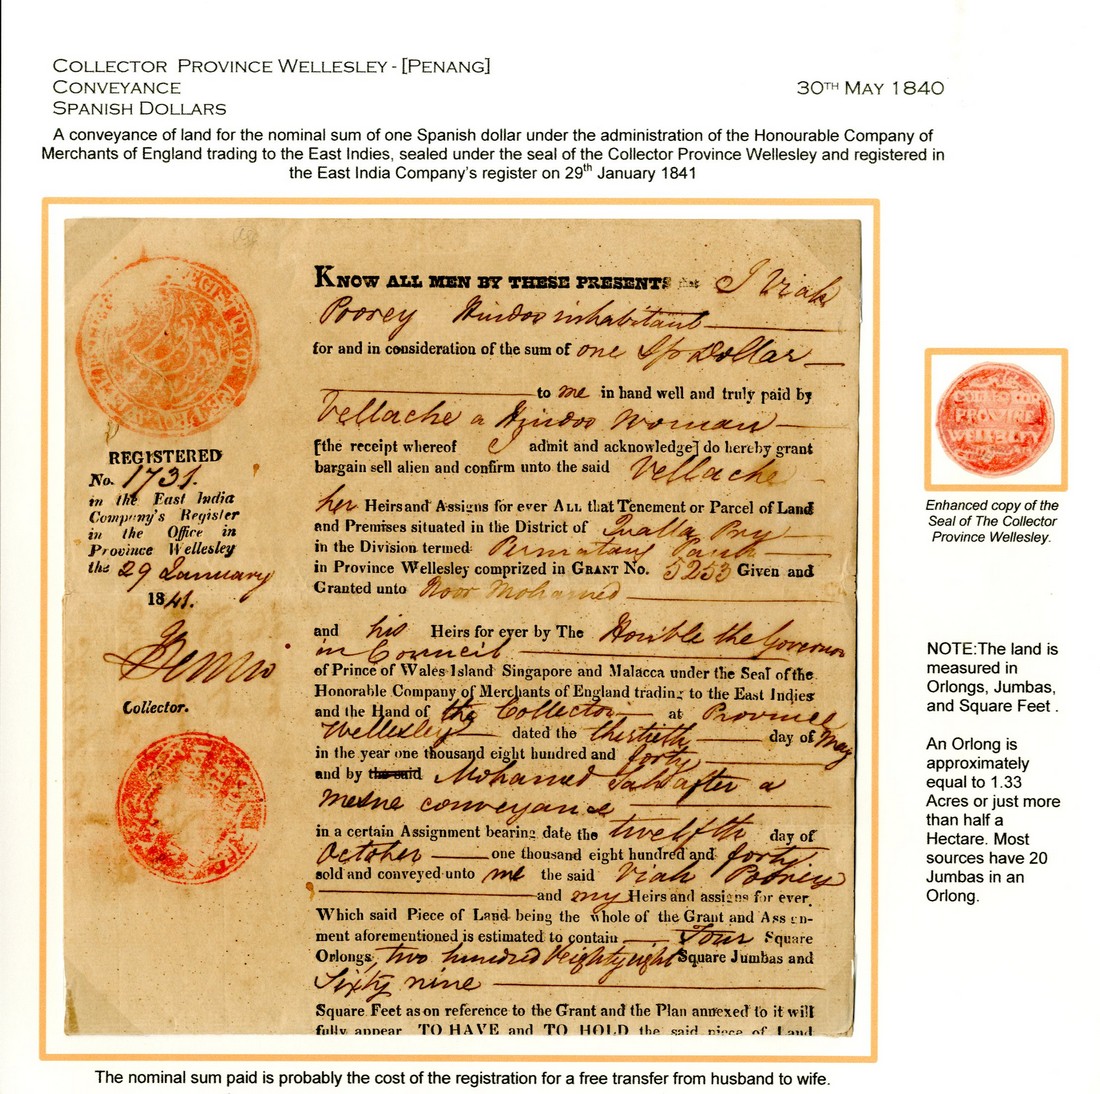 COLLECTOR PROVINCE WELLESLEY - [PENANG]
CONVEYANCE
30TH MAY 1840
SPANISH DOLLARS
A conveyance of land for the nominal sum of one Spanish dollar under the administration of the Honourable Company of
Merchants of England trading to the East Indies, sealed under the seal of the Collector Province Wellesley and registered in
the East India Company's register on 29th January 1841
REGISTERED
No. 1731.
in the East India
Company's Register
in the Office in
Province Wellesley
the 29 January
1841.
Collector.
KNOW ALL MEN BY THESE PRESENTS I Viah
Poorey Hindoo inhabitant
for and in consideration of the sum of one Sp Dollar
to me in hand well and truly paid by
Vellache a Hindoo Woman
[the receipt whereof I admit and acknowledge] do hereby grant
bargain sell alien and confirm unto the said Vellache
her Heirs and Assigns for ever ALL that Tenement or Parcel of Land
and Premises situated in the District of Qualla Pry
in the Division termed Permatang
in Province Wellesley comprized in GRANT NO. 5253 Given and
Granted unto Noor Mohamed
and his Heirs for ever by The Honble the Governor
in Council
of Prince of Wales Island Singapore and Malacca under the Seal of the
Honorable Company of Merchants of England trading to the East Indies
and the Hand of the Collector at Province
Wellesley dated the thirtieth day of May
in the year one thousand eight hundred and forty
and by the said Mohamed after a
mesne conveyance
in a certain Assignment bearing date the twelfth day of
October one thousand eight hundred and forty
sold and conveyed unto me the said Viah Poorey
and my Heirs and assigns for ever
Which said Piece of Land being the whole of the Grant and Assign-
ment aforementioned is estimated to contain Four Square
Orlongs, two hundred & eighty eight Square Jumbas and
Sixty nine
Square Feet as on reference to the Grant and the Plan annexed to it will
fully appear TO HAVE and TO HOLD the said piece of Land
COLLECTOR
PROVINCE
WELLESLEY
Enhanced copy of the
Seal of The Collector
Province Wellesley.
NOTE:The land is
measured in
Orlongs, Jumbas,
and Square Feet .
An Orlong is
approximately
equal to 1.33
Acres or just more
than half a
Hectare. Most
sources have 20
Jumbas in an
Orlong.
The nominal sum paid is probably the cost of the registration for a free transfer from husband to wife.